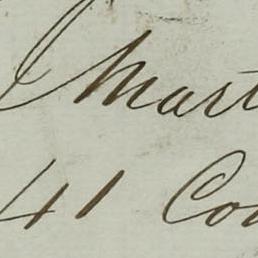 Mart
41 Co